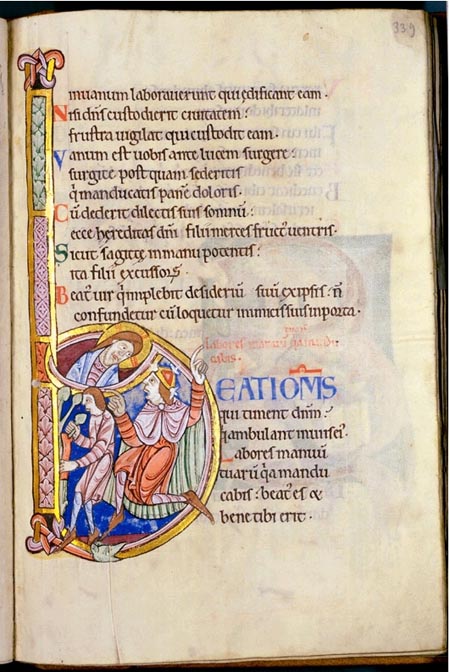 339
Inuanum laborauerunt qui edificant eam.
Nisi dn̄s custodierit ciuitatem:
frustra uigilat qui custodit eam.
Vanum est uobis ante lucem surgere:
surgite postquam sederitis
q̄ manducatis panē doloris.
Cū dederit dilectis suis somnū:
ecce hereditas dn̄i filii merces fruct' uentris.
Sicut sagitte inmanu potentis:
ita filii excussorꝝ.
Beat' uir q̄ implebit desideriū suū exipsis: n̄
confundetur cū loquetur inimicis suis inporta.
labores manuū
cabis.
BEATI OM̄S
qui timent dn̄m:
q̄ ambulant inuiis ei'.
Labores manuū
tuarū q̄a mandu
cabis: beat' es &
bene tibi erit.